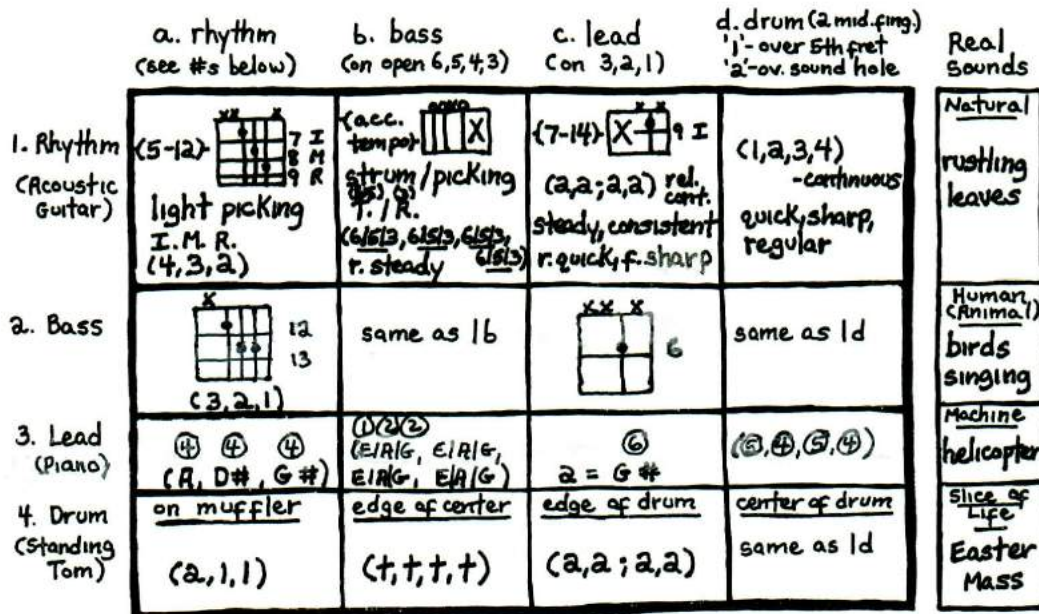 a. rhythm
(see #s below)
b. bass
(on open 6,5,4,3)
c. lead
(on 3,2,1)
d. drum (2 mid. fing.)
'1'- over 5th fret
'2'-ov. sound hole
Real
Sounds
1. Rhythm
(Acoustic
Guitar)
xx x
(5-12)
7 I
8 M
9 R
light picking
I. M. R.
(4,3,2)
(acc.
tempo)
X
strum/picking
T. / R.
(6/5/3, 6/5/3, 6/5/3,
6/5/3)
r. steady
x x
(7-14)
X
9 I
(2,2;2,2) rel.
cont.
steady, consistent
r. quick, f. sharp
(1,2,3,4)
-continuous
quick, sharp,
regular
Natural
rustling
leaves
2. Bass
x
12
13
(3,2,1)
same as 1b
xx x
6
same as 1d
Human,
(Animal)
birds
singing
3. Lead
(Piano)
4 4 4
(A, D#, G#)
1 2 2
(E/A/G, E/A/G,
E/A/G, E/A/G)
6
2 = G#
(5,4,5,4)
Machine
helicopter
4. Drum
(Standing
Tom)
on muffler
(2,1,1)
edge of center
(t,t,t,t)
edge of drum
(2,2;2,2)
center of drum
same as 1d
Slice of
Life
Easter
Mass